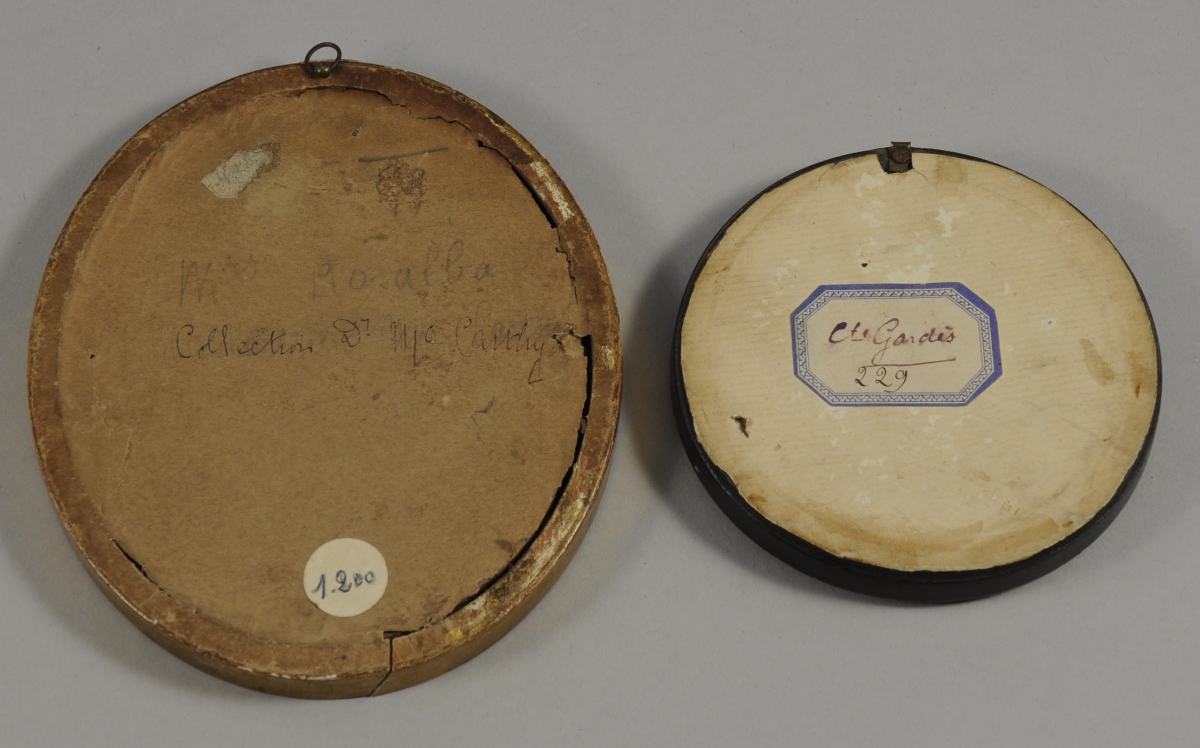 Rosalba
Collection Dr Mc Carthy
1.200
Cte Gardès
229